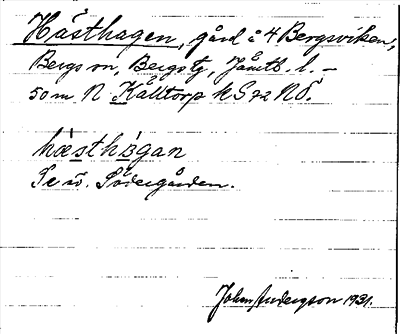 Hästhagen, gård å 4 Bergsviken,
Bergs sn, Bergs tg, Jämtl. l. –
50 m N Kålltorp kS 72 NÖ.
hæsthagan
Se u. Södergården.
John Andersson 1931.